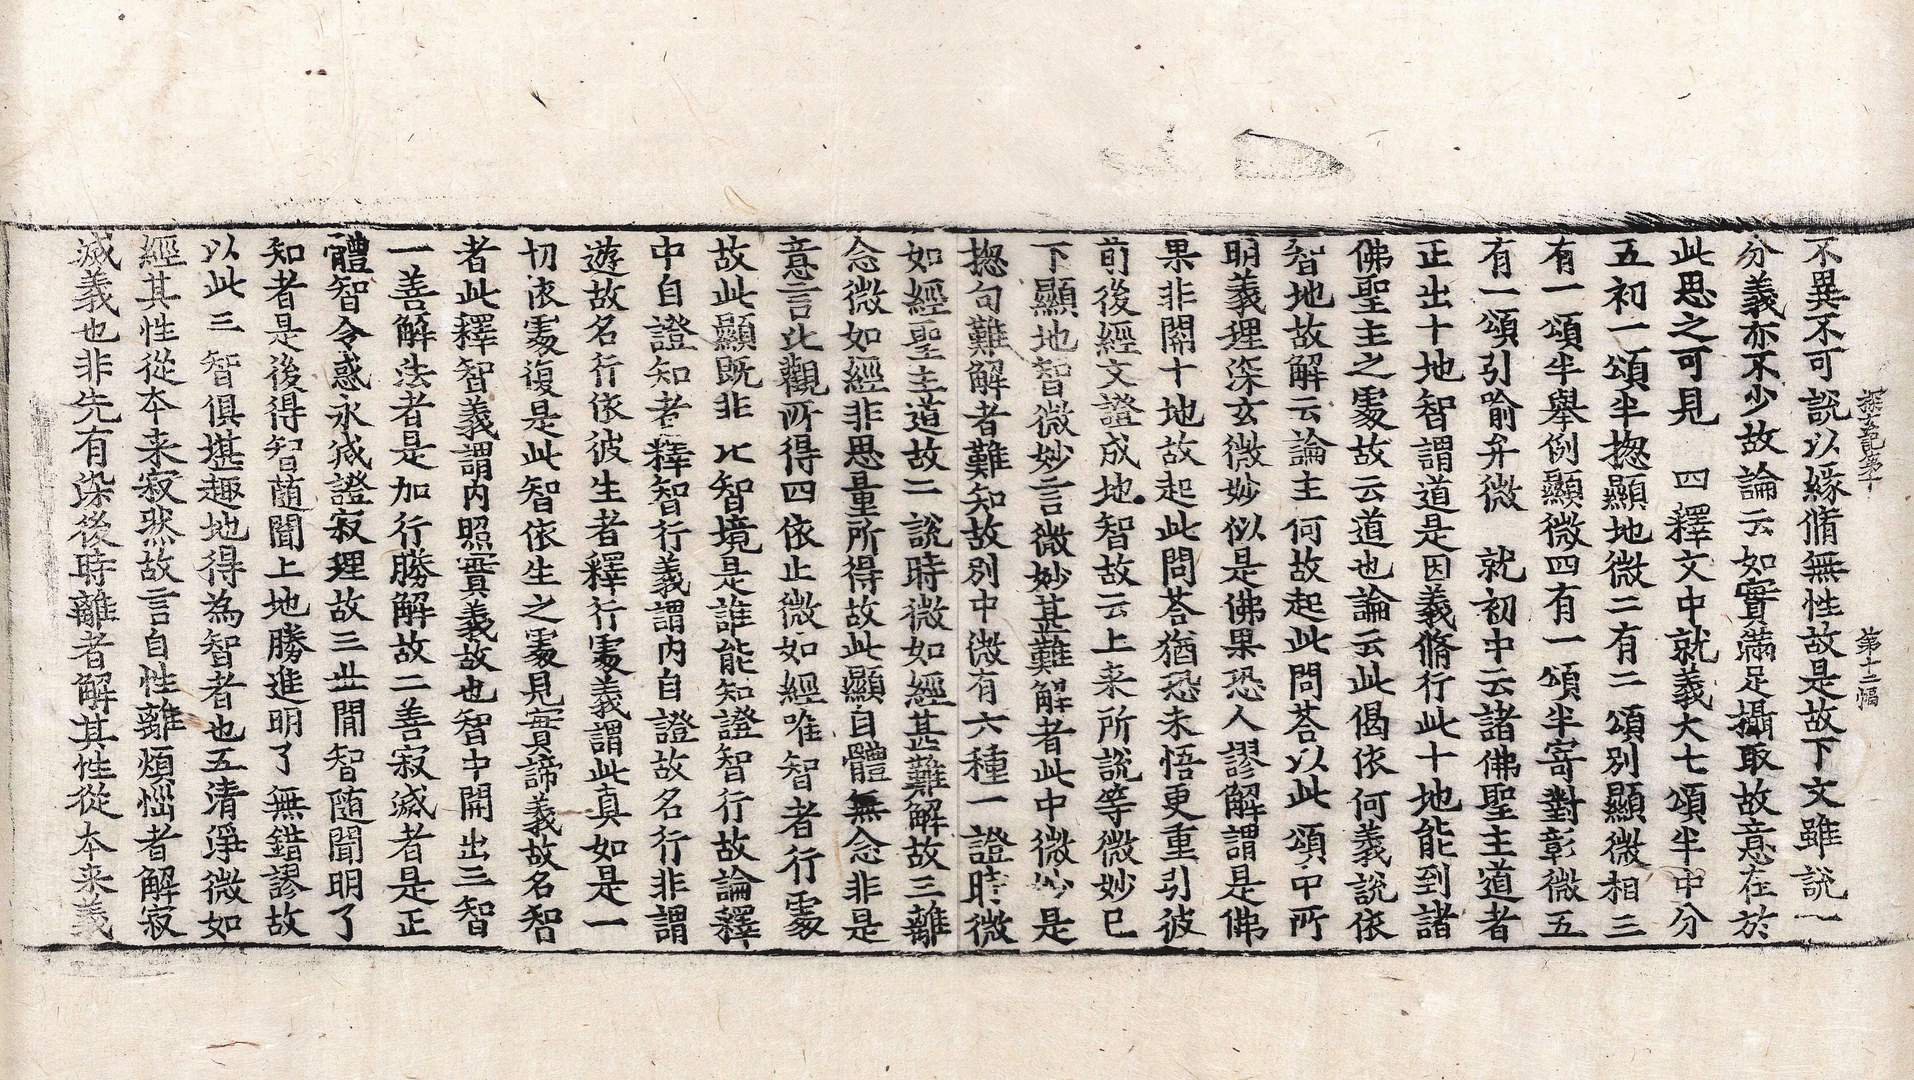 探玄記第十 第十二幅
不異不可說以緣脩無性故是故下文雖說一
分義亦不少故論云如實滿足攝取故意在於
此思之可見 四釋文中就義大七頌半中分
五初二頌半揔顯地微二有二頌別顯微相三
有一頌半舉例顯微四有一頌半寄對彰微五
有一頌引喻弁微 就初中云諸佛聖主道者
正出十地智謂道是因義脩行此十地能到諸
佛聖主之䖏故云道也論云此偈依何義說依
智地故解云論主何故起此問荅以此頌中所
明義理深玄微妙似是佛果恐人謬解謂是佛
果非關十地故起此問荅猶恐未悟更重引彼
前後經文證成地智故云上来所說等微妙已
下顯地智微妙言微妙甚難解者此中微妙是
揔句難解者難知故別中微有六種一證時微
如經聖主道故二說時微如經甚難解故三離
念微如經非思量所得故此顯自體無念非是
意言比觀所得四依止微如經唯智者行䖏
故此顯既非比智境是誰能知證智行故論釋
中自證知者釋智行義謂內自證故名行非謂
遊故名行依彼生者釋行䖏義謂此真如是一
切法䖏復是此智依生之䖏見實諦義故名智
者此釋智義謂內照實義故也智中開出三智
一善解法者是加行勝解故二善寂滅者是正
體智令惑永滅證寂理故三丗間智随聞明了
知者是後得智随聞上地勝進明了無錯謬故
以此三智俱堪趣地得為智者也五清淨微如
經其性從本来寂然故言自性離煩惱者解寂
滅義也非先有染後時離者解其性從本来義